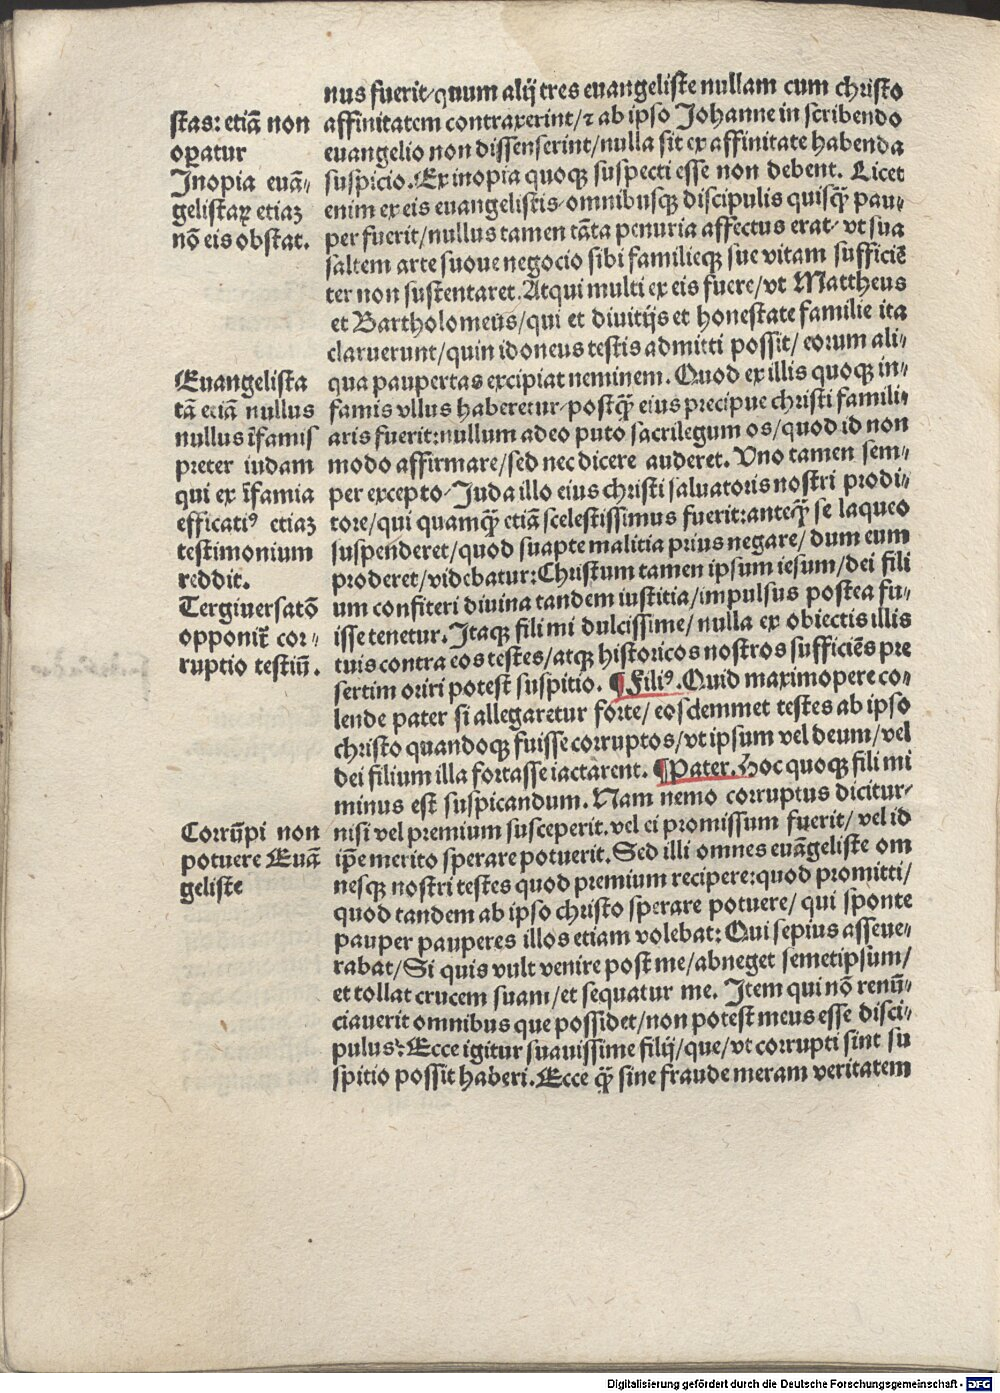 stas: etiã non
oꝑatur
Inopia euã-
gelistaꝝ etiaꝫ
nõ eis obstat.
Euangelista
tã etiã nullus
nullus ĩfamis
preter iudam
qui ex ĩfamia
efficatiꝰ etiaꝫ
testimonium
reddit.
Tergiuersatõ
opponit̃ cor-
ruptio testiũ.
Corrũpi non
potuere Euã
geliste
nus fuerit/quum alij tres euangeliste nullam cum christo
affinitatem contraxerint/⁊ ab ipso Johanne in scribendo
euangelio non dissenserint/nulla sit ex affinitate habenda
suspicio. Ex inopia quoqꝫ suspecti esse non debent. Licet
enim ex eis euangelistis omnibusqꝫ discipulis quisq̃ꝫ pau-
per fuerit/nullus tamen tãta penuria affectus erat/ vt sua
saltem arte suoue negocio sibi familieqꝫ sue vitam sufficiẽ
ter non sustentaret. Atqui multi ex eis fuere/vt Mattheus
et Bartholomeus/qui et diuitijs et honestate familie ita
claruerunt/quin idoneus testis admitti possit/ eorum ali-
qua paupertas excipiat neminem. Quod ex illis quoqꝫ in-
famis vllus haberetur/postq̃ꝫ eius precipue christi famili-
aris fuerit:nullum adeo puto sacrilegum os/quod id non
modo affirmare/sed nec dicere auderet. Uno tamen sem-
per excepto/Juda illo eius christi saluatoris nostri prodi-
tore/qui quamq̃ꝫ etiã scelestissimus fuerit:anteq̃ꝫ se laqueo
suspenderet/quod suapte malitia prius negare/ dum eum
proderet/videbatur:Christum tamen ipsum iesum/dei fili
um confiteri diuina tandem iustitia/impulsus postea fu-
isse tenetur. Itaqꝫ fili mi dulcissime/ nulla ex obiectis illis
tuis contra eos testes/atqꝫ historicos nostros sufficiẽs pre
sertim oriri potest suspitio. ¶Filiꝰ. Quid maximopere co-
lende pater si allegaretur forte/ eosdemmet testes ab ipso
christo quandoqꝫ fuisse corruptos/vt ipsum vel deum/vel
dei filium illa fortasse iactarent. ¶Pater. Hoc quoqꝫ fili mi
minus est suspicandum. Nam nemo corruptus dicitur/
nisi vel premium susceperit. vel ei promissum fuerit/ vel id
ip̃e merito sperare potuerit. Sed illi omnes euãgeliste om
nesqꝫ nostri testes quod premium recipere:quod promitti/
quod tandem ab ipso christo sperare potuere/ qui sponte
pauper pauperes illos etiam volebat: Qui sepius asseue-
rabat/Si quis vult venire post me/abneget semetipsum/
et tollat crucem suam/et sequatur me. Item qui nõ renũ-
ciauerit omnibus que possidet/non potest meus esse disci-
pulus: Ecce igitur suauissime filij/que/vt corrupti sint su
spitio possit haberi. Ecce q̃ꝫ sine fraude meram veritatem
Digitalisierung gefördert durch die Deutsche Forschungsgemeinschaft - DFG